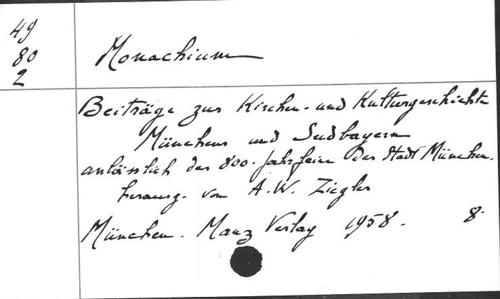 49
80
2
Monachium
Beiträge zur Kirchen- und Kulturgeschichte
Münchens und Südbayerns
anlässlich der 800-Jahrfeier der Stadt München.
herausg. von A.W. Ziegler
München. Manz Verlag 1958. 8°